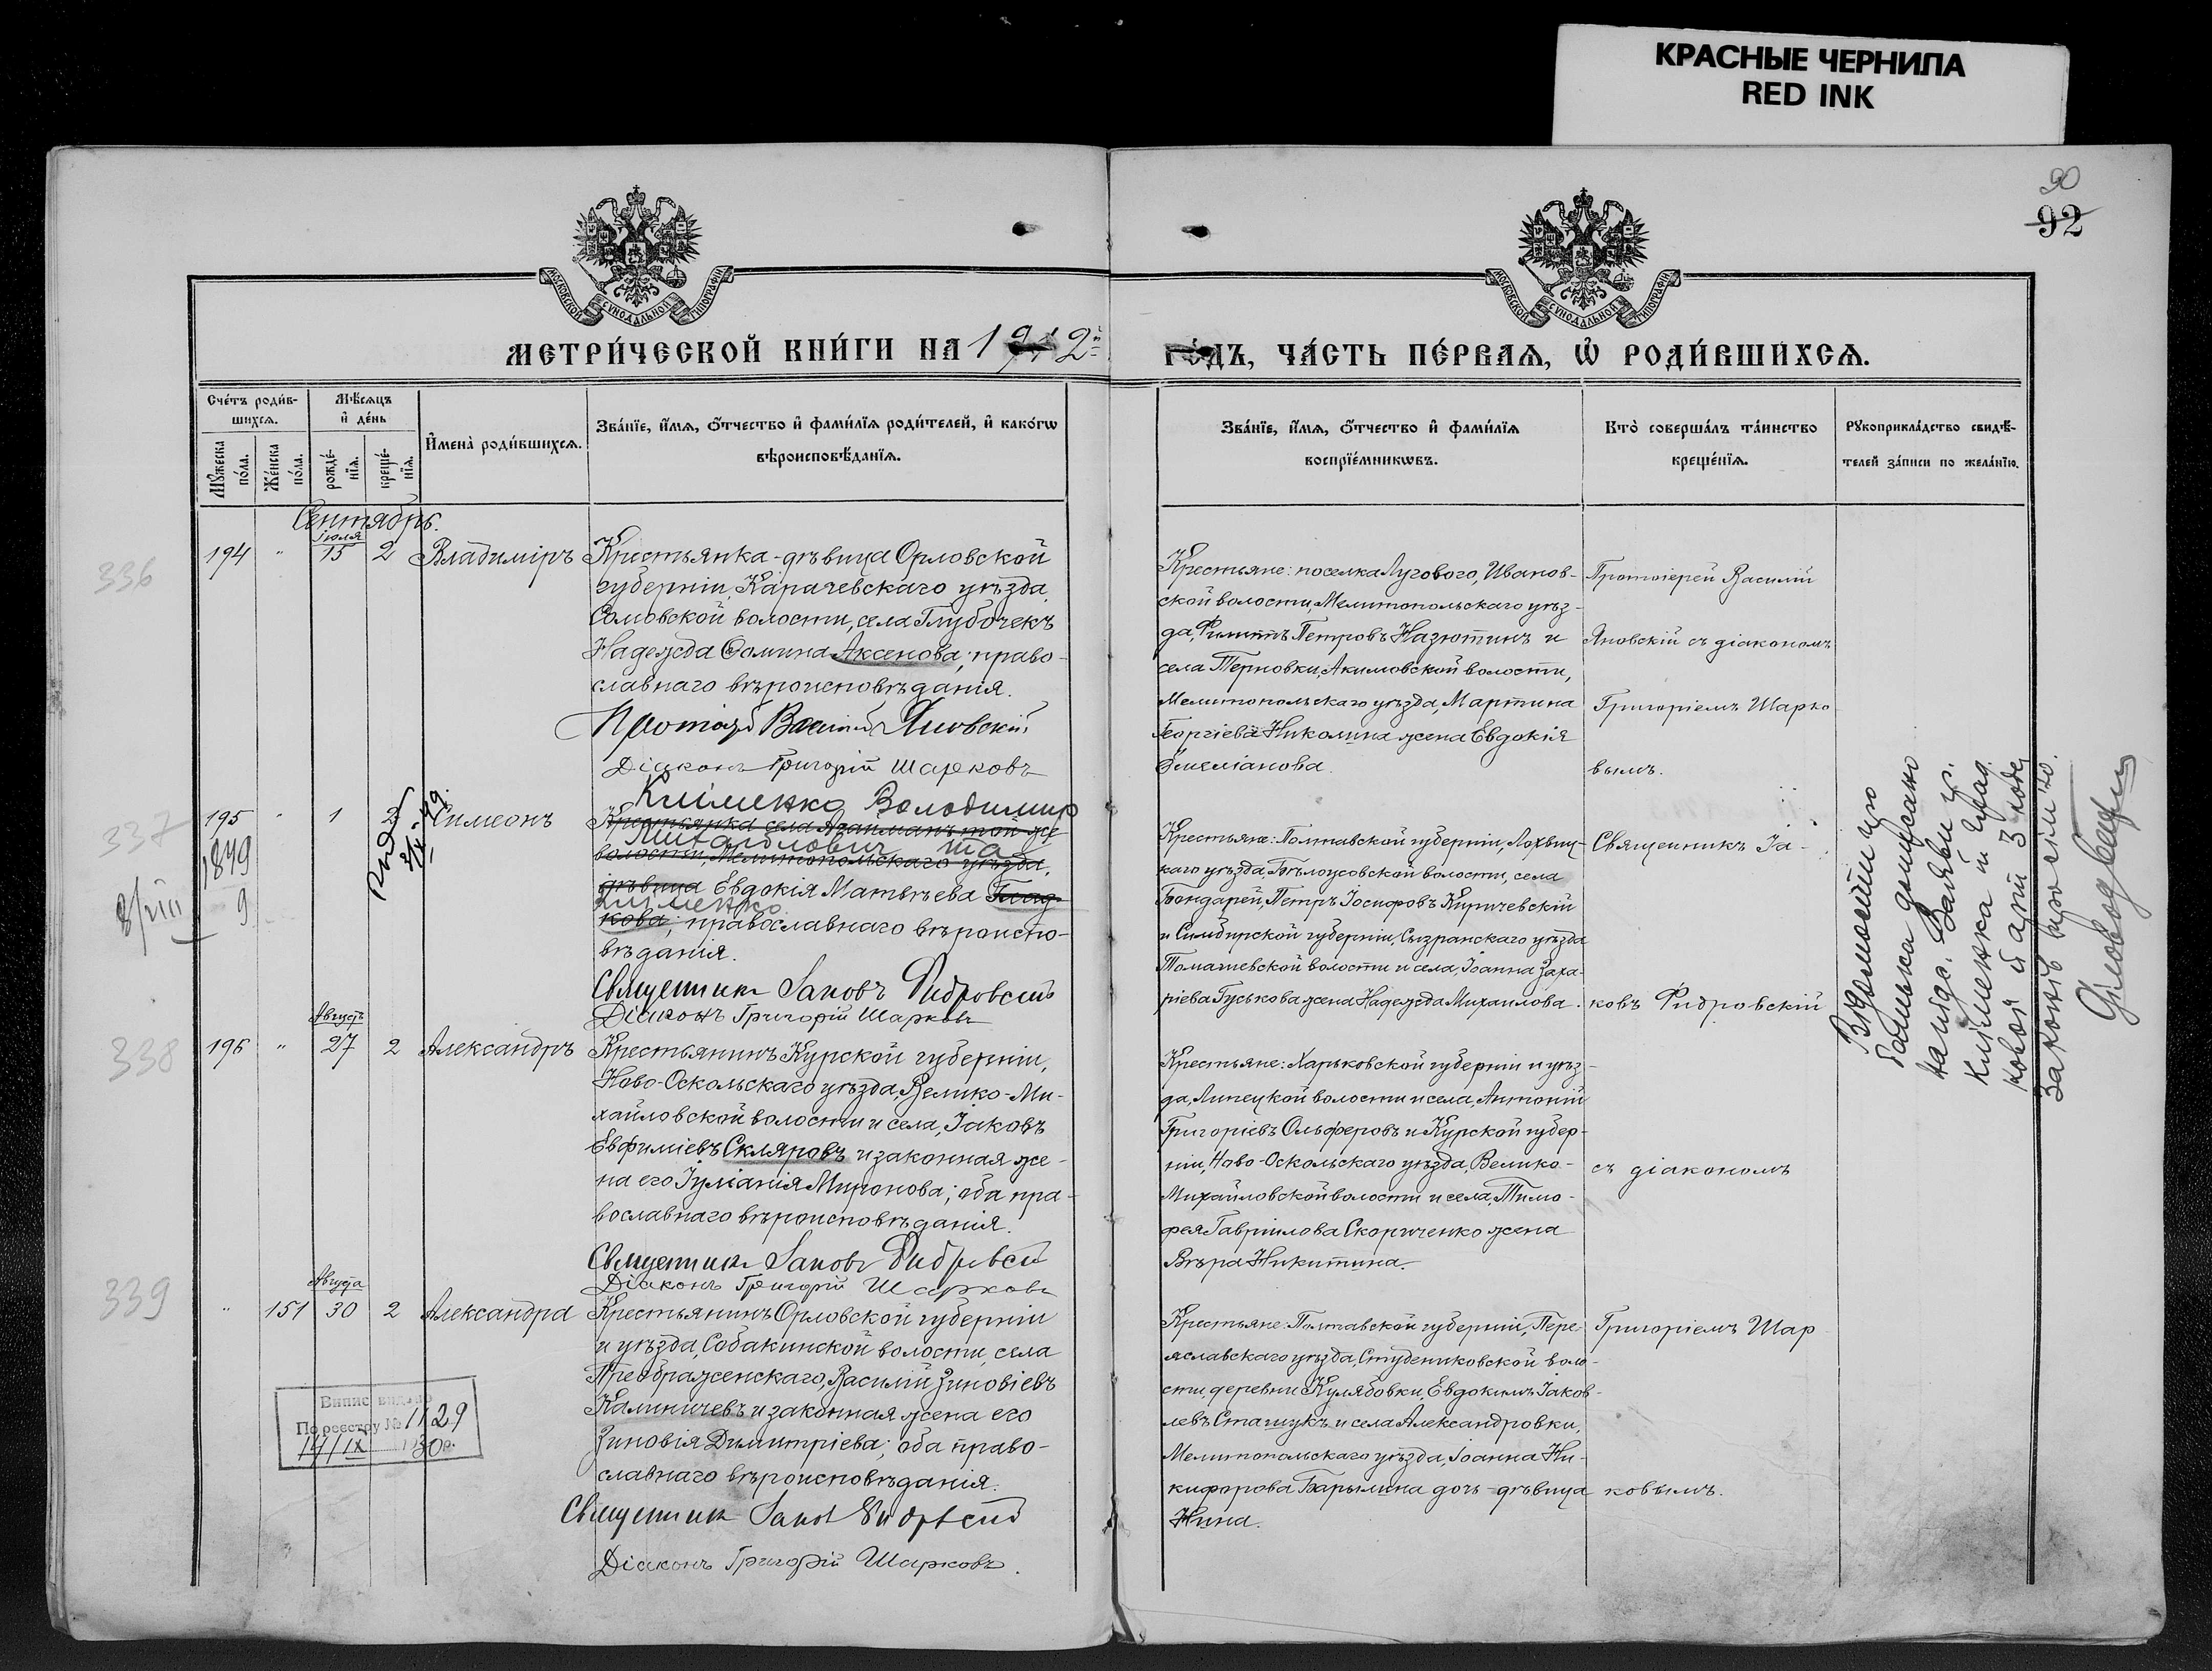 КРАСНЫЕ ЧЕРНИЛА
RED INK
90
92
МОСКОВСКОЙ СѴНОДАЛЬНОЙ ТИПОГРАФІИ
МОСКОВСКОЙ СѴНОДАЛЬНОЙ ТИПОГРАФІИ
МЕТРИ́ЧЕСКОЙ КНИ́ГИ НА 1912й
ГО́ДЪ, ЧА́СТЬ ПЕ́РВАЯ, Ѡ҆ РОДИ́ВШИХСЯ.
Сче́тъ роди́в-
шихся.
Мѣ́сяцъ
и҆ де́нь
Мꙋ́жеска
по́ла.
Же́нска
по́ла.
рожде́-
нїя.
креще́-
нїя.
И҆мена̀ роди́вшихся.
Зва́нїе, и҆́мя, ѻ҆́тчество и҆ фами́лїя роди́телей, и҆ како́гѡ
вѣроисповѣ́данїя.
Зва́нїе, и҆́мя, ѻ҆́тчество и҆ фами́лїя
воспрїе́мникѡвъ.
Кто̀ соверша́лъ та́инство
креще́нїя.
Рꙋкоприкла́дство свидѣ́-
телей за́писи по жела́нїю.
Сентябрь.
336
194 " Іюля 15 2 Владиміръ
Крестьянка-дѣвица Орловской
губерніи, Карачевскаго уѣзда,
Сомовской волости, села Глубочекъ
Надежда Ѳомина Аксенова; право-
славнаго вѣроисповѣданія.
Василій Яновскій
Діаконъ Григорій Шарковъ
Крестьяне: поселка Лугового, Иванов-
ской волости, Мелитопольскаго уѣз-
да, Филиппъ Петровъ Назютинъ и
села Терновки, Акимовской волости,
Мелитопольскаго уѣзда, Мартина
Георгіева Николина жена Евдокія
Емеліанова.
Протоіерей Василій
Яновскій съ діакономъ
Григоріемъ Шарко
вымъ.
337
195 " 1 2 Симеонъ
1879
8/VIII 9
Кліменко Володимир
Крестьянка села Агайманъ той же
Митрополович та
волости, Мелитопольскаго уѣзда,
дѣвица Евдокія Матвѣева Глад-
Кліменко
кова; православнаго вѣроиспо-
вѣданія.
Священникъ Іаковъ Фидровскій
Діаконъ Григорій Шарковъ
Крестьяне: Полтавской губерніи, Лохвиц-
каго уѣзда, Бѣлоусовской волости, села
Бондарей, Петръ Іосифовъ Киричевскій
и Симбирской губерніи, Сызранскаго уѣзда
Томашевской волости и села, Іоанна Заха-
ріева Гуськова жена Надежда Михаилова.
Священникъ Іа-
ковъ Фидровскій
338
196 " Августа 27 2 Александръ
Крестьянинъ Курской губерніи,
Ново-Оскольскаго уѣзда, Велико-Ми-
хайловской волости и села, Іаковъ
Евфиміевъ Скляровъ и законная же-
на его Іуліанія Миронова; оба пра-
вославнаго вѣроисповѣданія.
Священникъ Іаковъ Фидровскій
Діаконъ Григорій Шарковъ
Крестьяне: Харьковской губерніи и уѣз-
да, Липецкой волости и села, Антоній
Григоріевъ Ольферовъ и Курской губер-
ніи, Ново-Оскольскаго уѣзда, Велико-
Михайловской волости и села, Тимо-
фея Гавріилова Скориченко жена
Вѣра Никитина.
съ діакономъ
339
" 151 Августа 30 2 Александра
Крестьянинъ Орловской губерніи
и уѣзда, Собакинской волости, села
Преображенскаго, Василій Зиновіевъ
Калиничевъ и законная жена его
Зиновія Димитріева; оба право-
славнаго вѣроисповѣданія.
Священникъ Іаковъ Фидровскій
Діаконъ Григорій Шарковъ.
Крестьяне: Полтавской губерніи, Пере-
яславскаго уѣзда, Студениковской воло-
сти, деревни Кулябовки, Евдокимъ Іаков-
левъ Сташукъ и села Александровки,
Мелитопольскаго уѣзда, Іоанна Ни-
кифорова Барылина дочь-дѣвица
Нина.
Григоріемъ Шар
ковымъ.
Випис видано
По реестру № 1129
14/IX 1930р.
Відомости про
батька
Кліменка
Діловод